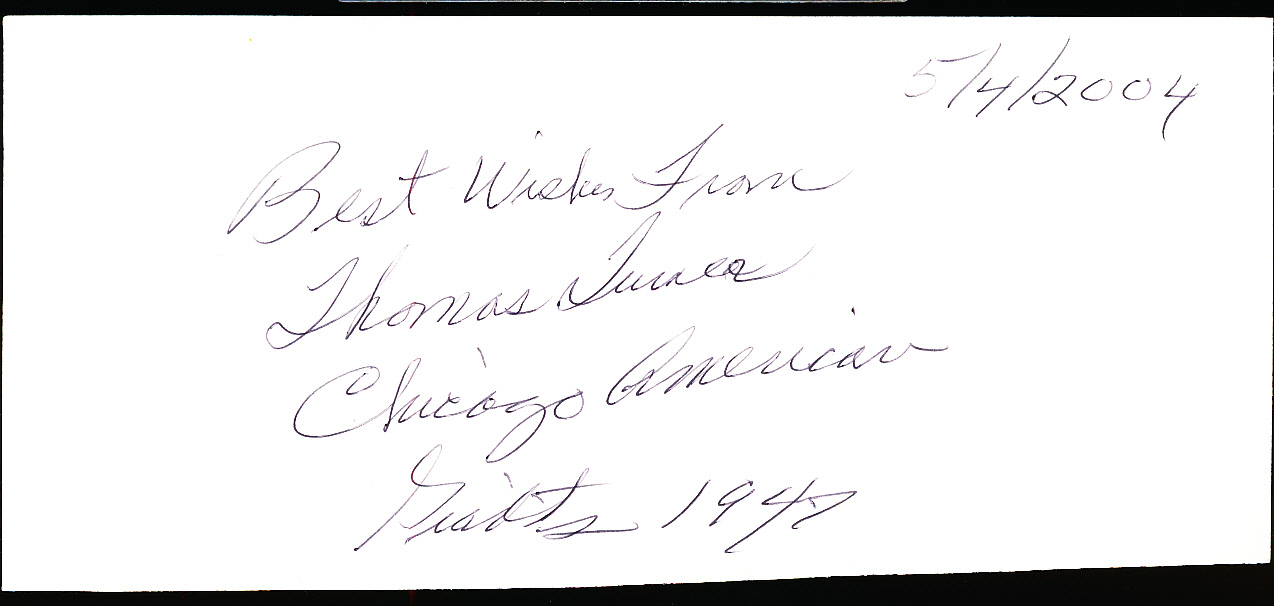 5/4/2004
Best Wishes From
Thomas Turner
Chicago American
Giants 1947